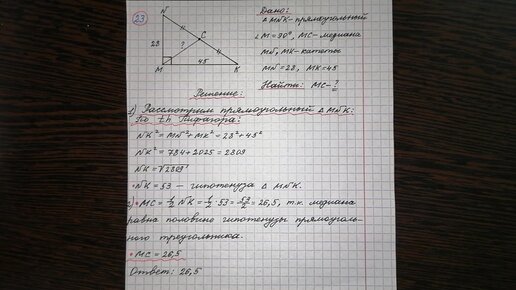 23
N
28
?
C
M
45
K
Дано:
△MNK-прямоугольный
∠M=90°, MC-медиана
MN, MK-катеты
MN=28, MK=45
Найти: MC-?
Решение:
1) Рассмотрим прямоугольный △MNK:
По th Пифагора:
NK²=MN²+MK²=28²+45²
NK²=784+2025=2809
NK=√2809
•NK=53 — гипотенуза △MNK.
2)•MC=½NK=½·53=53/2=26,5, т.к. медиана
равна половине гипотенузы прямоуголь-
ного треугольника.
•MC=26,5
Ответ: 26,5